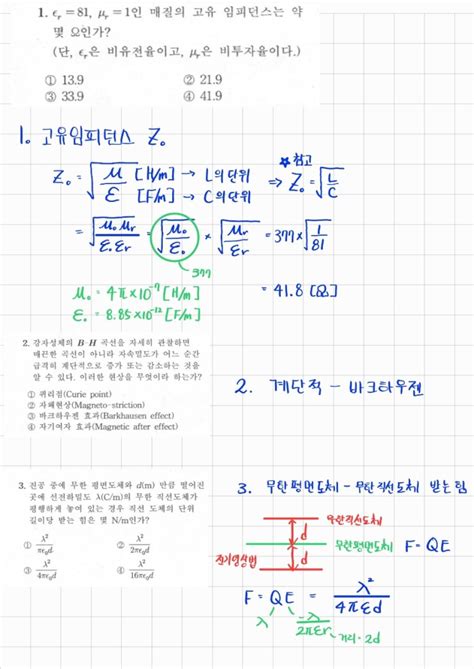 1. εr=81, μr=1인 매질의 고유 임피던스는 약
몇 Ω인가?
(단, εr은 비유전율이고, μr은 비투자율이다.)
① 13.9
② 21.9
③ 33.9
④ 41.9
1. 고유임피던스 Z₀
Z₀ = √(μ/ε) [H/m] → L의 단위
[F/m] → C의 단위
★참고
⇒ Z₀ = √(L/C)
= √(μ₀μr/ε₀εr) = √(μ₀/ε₀) × √(μr/εr) = 377 × √(1/81)
377
μ₀ = 4π×10⁻⁷ [H/m]
= 41.8 [Ω]
ε₀ = 8.85×10⁻¹² [F/m]
2. 강자성체의 B-H 곡선을 자세히 관찰하면
매끈한 곡선이 아니라 자속밀도가 어느 순간
급격히 계단적으로 증가 또는 감소하는 것을
알 수 있다. 이러한 현상을 무엇이라 하는가?
① 퀴리점(Curie point)
② 자왜현상(Magneto-striction)
③ 바크하우젠 효과(Barkhausen effect)
④ 자기여자 효과(Magnetic after effect)
2. 계단적 - 바크하우젠
3. 진공 중에 무한 평면도체와 d(m) 만큼 떨어진
곳에 선전하밀도 λ(C/m)의 무한 직선도체가
평행하게 놓여 있는 경우 직선 도체의 단위
길이당 받는 힘은 몇 N/m인가?
① λ²/πε₀d
② λ²/2πε₀d
③ λ²/4πε₀d
④ λ²/16πε₀d
3. 무한평면도체 - 무한직선도체 받는 힘
무한직선도체
d
무한평면도체 F=QE
전기영상법
d
F = QE = λ²/4πεd
λ
-λ/2πεr
거리 · 2d